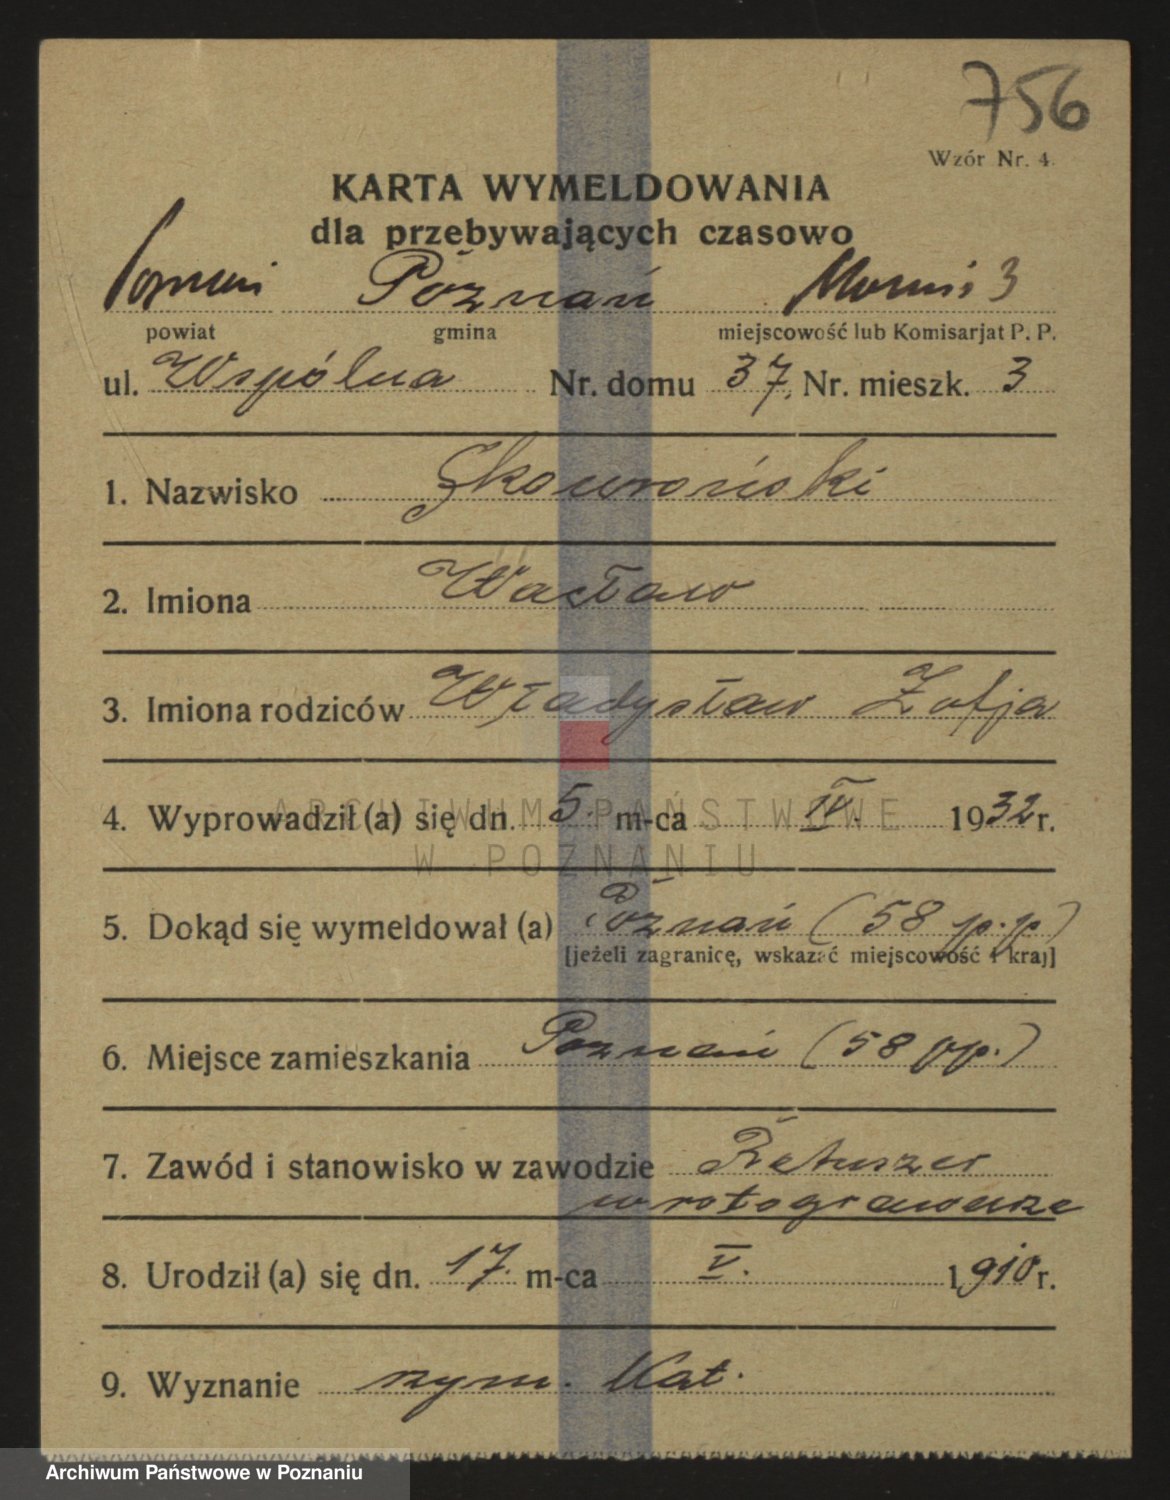 756
Wzór Nr. 4.
KARTA WYMELDOWANIA
dla przebywających czasowo
Poznań Poznań 3
powiat gmina miejscowość lub Komisarjat P. P.
ul. Wspólna Nr. domu 37, Nr. mieszk. 3
1. Nazwisko Skowroński
2. Imiona Wacław
3. Imiona rodziców Władysław Zofja
4. Wyprowadził (a) się dn. 5. m-ca IV. 1932 r.
ARCHIWUM PAŃSTWOWE
W POZNANIU
5. Dokąd się wymeldował (a) Poznań (58 p.p)
[jeżeli zagranicę, wskazać miejscowość i kraj]
6. Miejsce zamieszkania Poznań (58 pp.)
7. Zawód i stanowisko w zawodzie Retuszer
w rotograwurze
8. Urodził (a) się dn. 17. m-ca V. 1910 r.
9. Wyznanie rzym. kat.
Archiwum Państwowe w Poznaniu